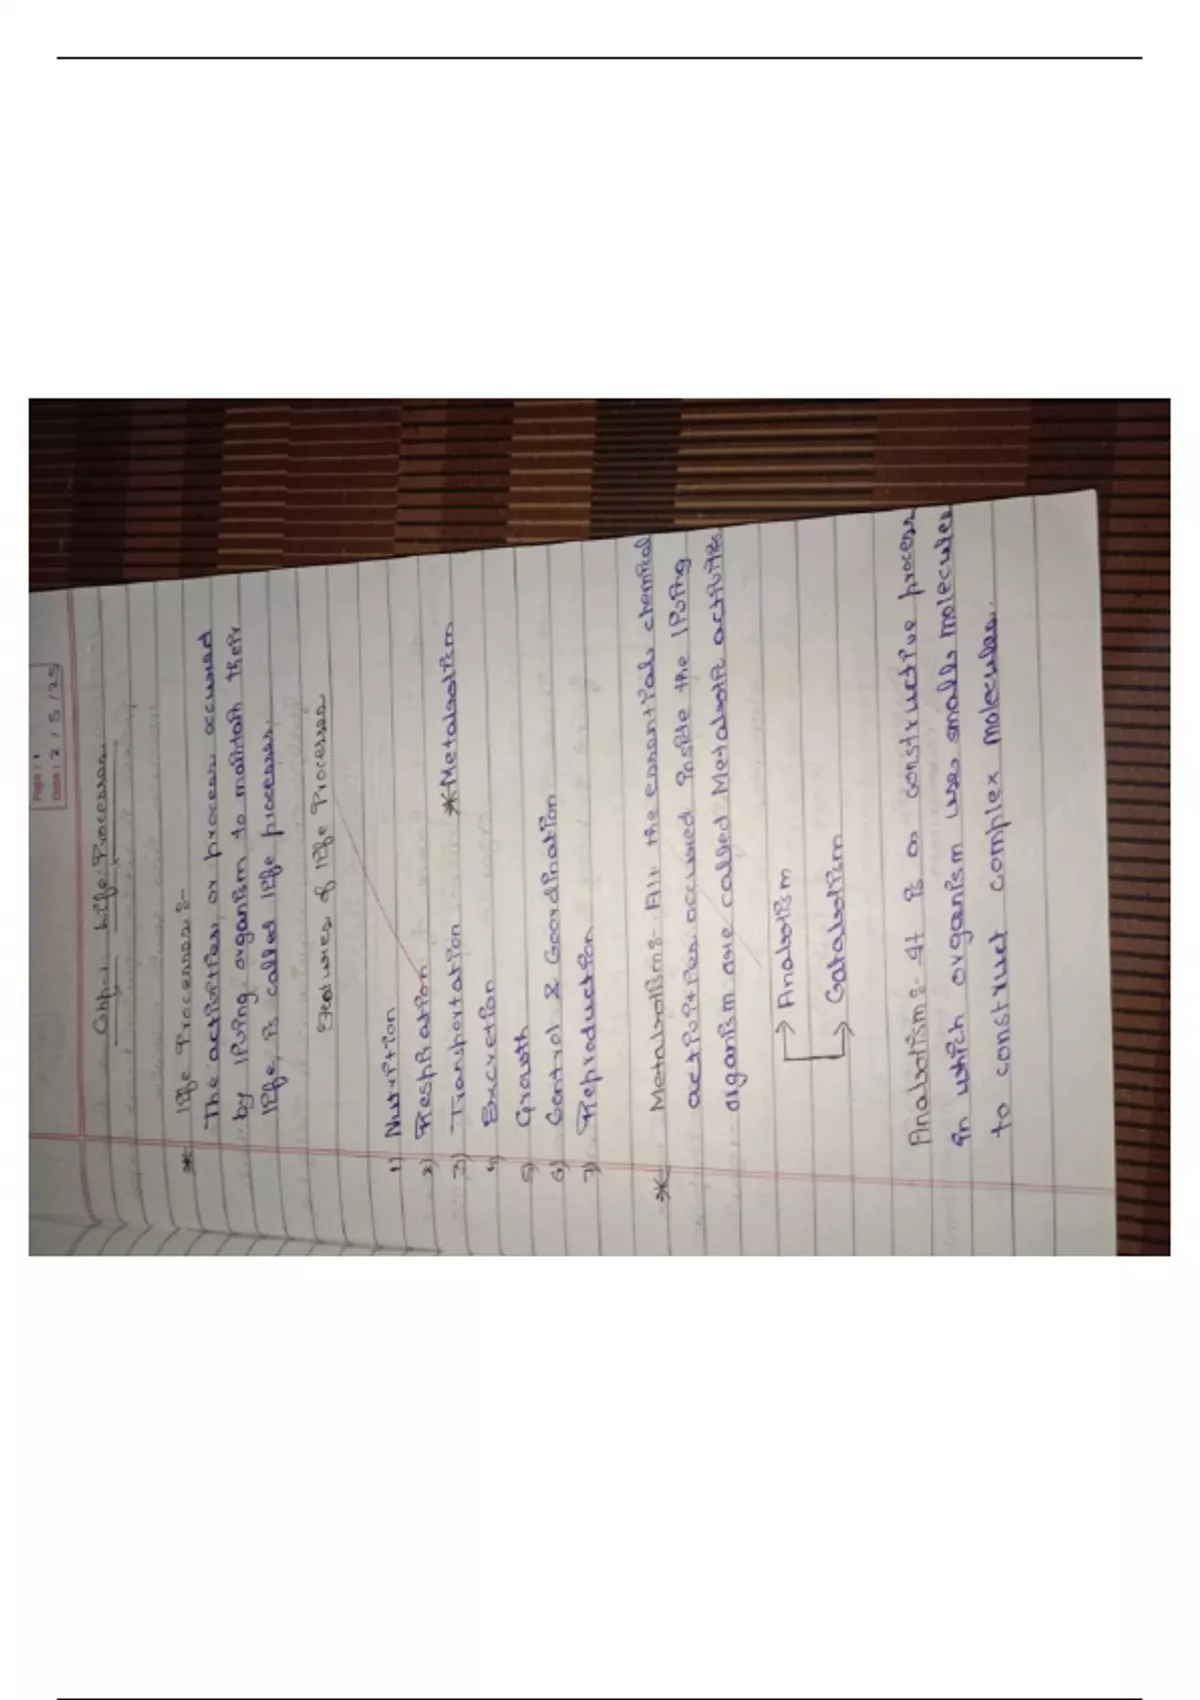 Page: 1
Date: 2/5/25
Chp-1 Life Processes
* life Processes:-
The activities, or process occured
by living organism to maintain their
life, is called life processes.
Features of life Processes
1) Nutrition
2) Respiration
3) Transportation *Metabolism
4) Excretion
5) Growth
6) Control & Coordination
7) Reproduction
* Metabolism:- All the essential chemical
activities occured inside the living
organism are called Metabolic activities
→ Anabolism
→ Catabolism
Anabolism:- It is a constructive process
in which organism use small molecules
to construct complex molecules.